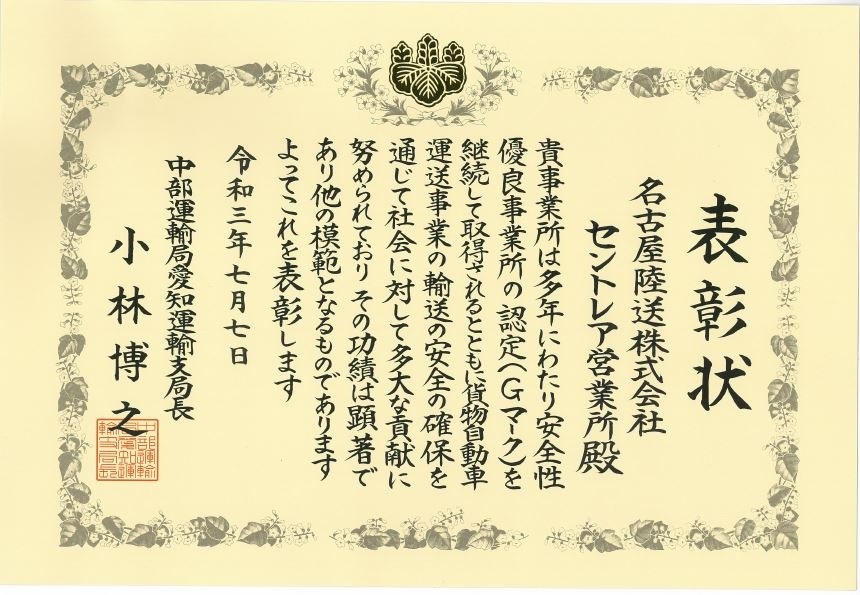 表彰状
名古屋陸送株式会社
セントレア営業所殿
貴事業所は多年にわたり安全性
優良事業所の認定(Gマーク)を
継続して取得されるとともに貨物自動車
運送事業の輸送の安全の確保を
通じて社会に対して多大な貢献に
努められておりその功績は顕著で
あり他の模範となるものであります
よってこれを表彰します
令和三年七月七日
中部運輸局愛知運輸支局長
小林博之